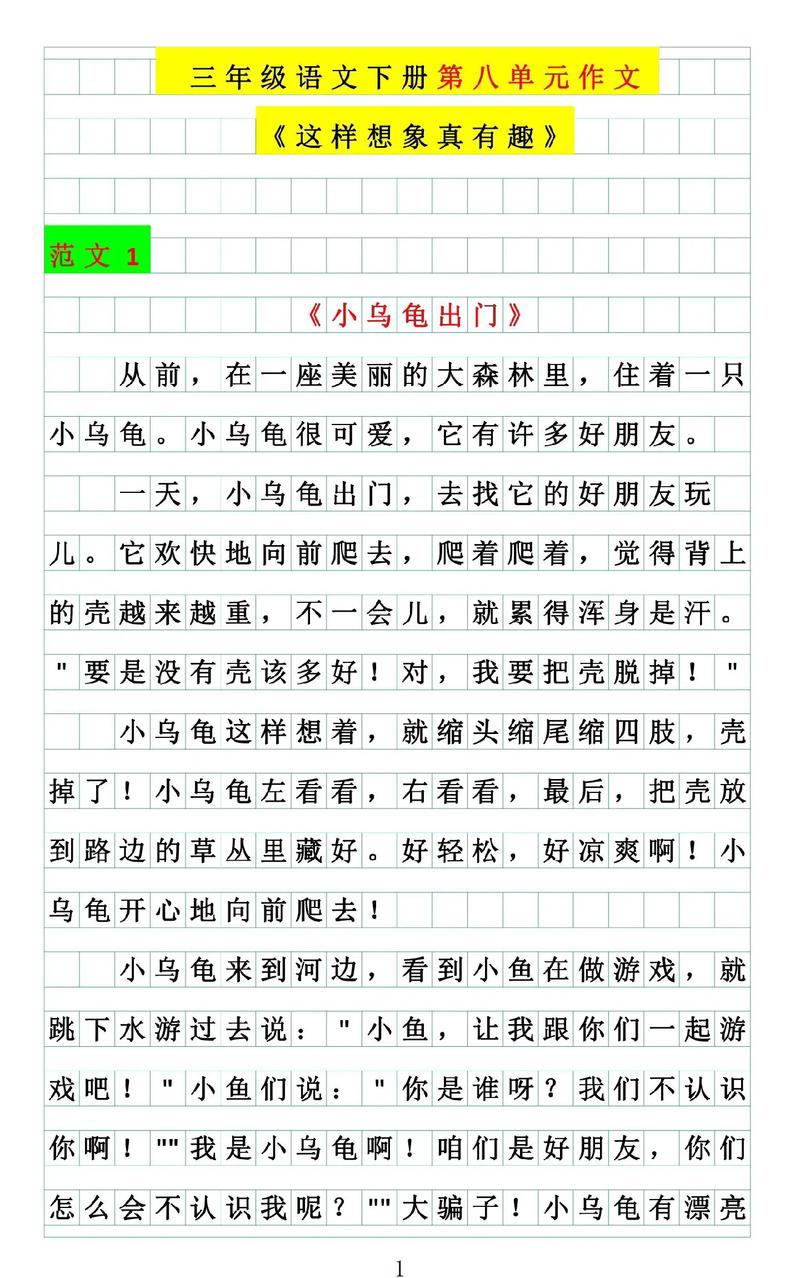 三年级语文下册第八单元作文
《这样想象真有趣》
范文1
《小乌龟出门》
从前，在一座美丽的大森林里，住着一只
小乌龟。小乌龟很可爱，它有许多好朋友。
一天，小乌龟出门，去找它的好朋友玩
儿。它欢快地向前爬去，爬着爬着，觉得背上
的壳越来越重，不一会儿，就累得浑身是汗。
"要是没有壳该多好！对，我要把壳脱掉！"
小乌龟这样想着，就缩头缩尾缩四肢，壳
掉了！小乌龟左看看，右看看，最后，把壳放
到路边的草丛里藏好。好轻松，好凉爽啊！小
乌龟开心地向前爬去！
小乌龟来到河边，看到小鱼在做游戏，就
跳下水游过去说："小鱼，让我跟你们一起游
戏吧！"小鱼们说："你是谁呀？我们不认识
你啊！""我是小乌龟啊！咱们是好朋友，你们
怎么会不认识我呢？""大骗子！小乌龟有漂亮
1